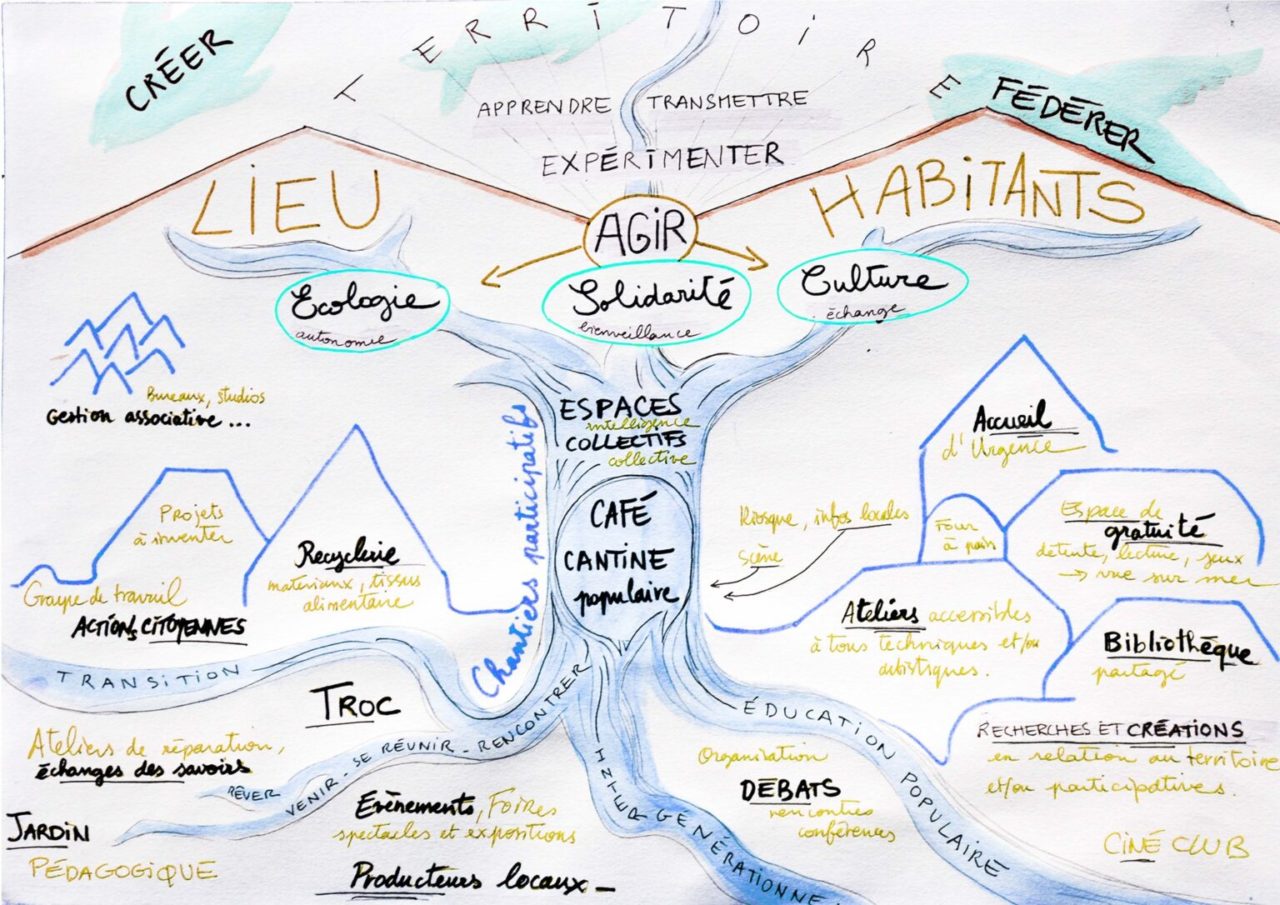 CRÉER
TERRITOIRE
FÉDÉRER
APPRENDRE TRANSMETTRE
EXPÉRIMENTER
LIEU
AGIR
HABITANTS
Ecologie
autonomie
Solidarité
bienveillance
Culture
échange
Bureaux, studios
Gestion associative ...
ESPACES
intelligence
COLLECTIFS
collective
CAFÉ
CANTINE
populaire
Chantiers participatifs
Accueil
d'Urgence
Projets
à inventer
Recyclerie
materiaux, tissus
alimentaire
Groupe de travail
ACTIONS CITOYENNES
Kiosque, infos locales
Scène
Four
à pain
Espace de
gratuité
detente, lecture, jeux
→ vue sur mer
Ateliers accessibles
à tous techniques et/ou
artistiques.
Bibliothèque
partagé
TRANSITION
TROC
Ateliers de réparation,
échanges des savoirs
RÊVER VENIR - SE RÉUNIR - RENCONTRER
JARDIN
PÉDAGOGIQUE
Evènements, Foires
spectacles et expositions
Producteurs locaux -
INTERGENÉRATIONNE
Organisation
DÉBATS
rencontres
conférences
ÉDUCATION POPULAIRE
RECHERCHES ET CRÉATIONS
en relation au territoire
et/ou participatives.
CINÉ CLUB